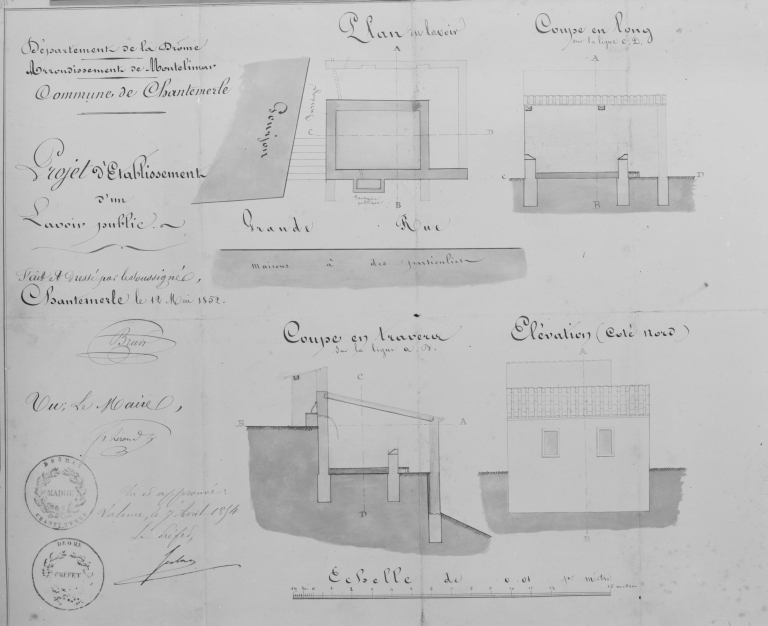 Département de la Drôme
Arrondissement de Montélimar
Commune de Chantemerle
Projet d'Etablissement
d'un
Lavoir public
Fait et dressé par le soussigné,
Chantemerle le 12 Mai 1852.
Brun
Vu, Le Maire,
DROME
MAIRIE
Vu et approuvé
Valence, le 7 1854
Le Préfet,
DROME
PREFET
Plan du lavoir
A
Gourjon
Passage
C
D
B
Grande Rue
Maisons à des particuliers
Coupe en long
sur la ligne C. D.
A
C
D
B
Coupe en travers
sur la ligne A. B.
C
B
A
D
Elévation (Coté nord)
A
B
Echelle de 0,01 pr mètre